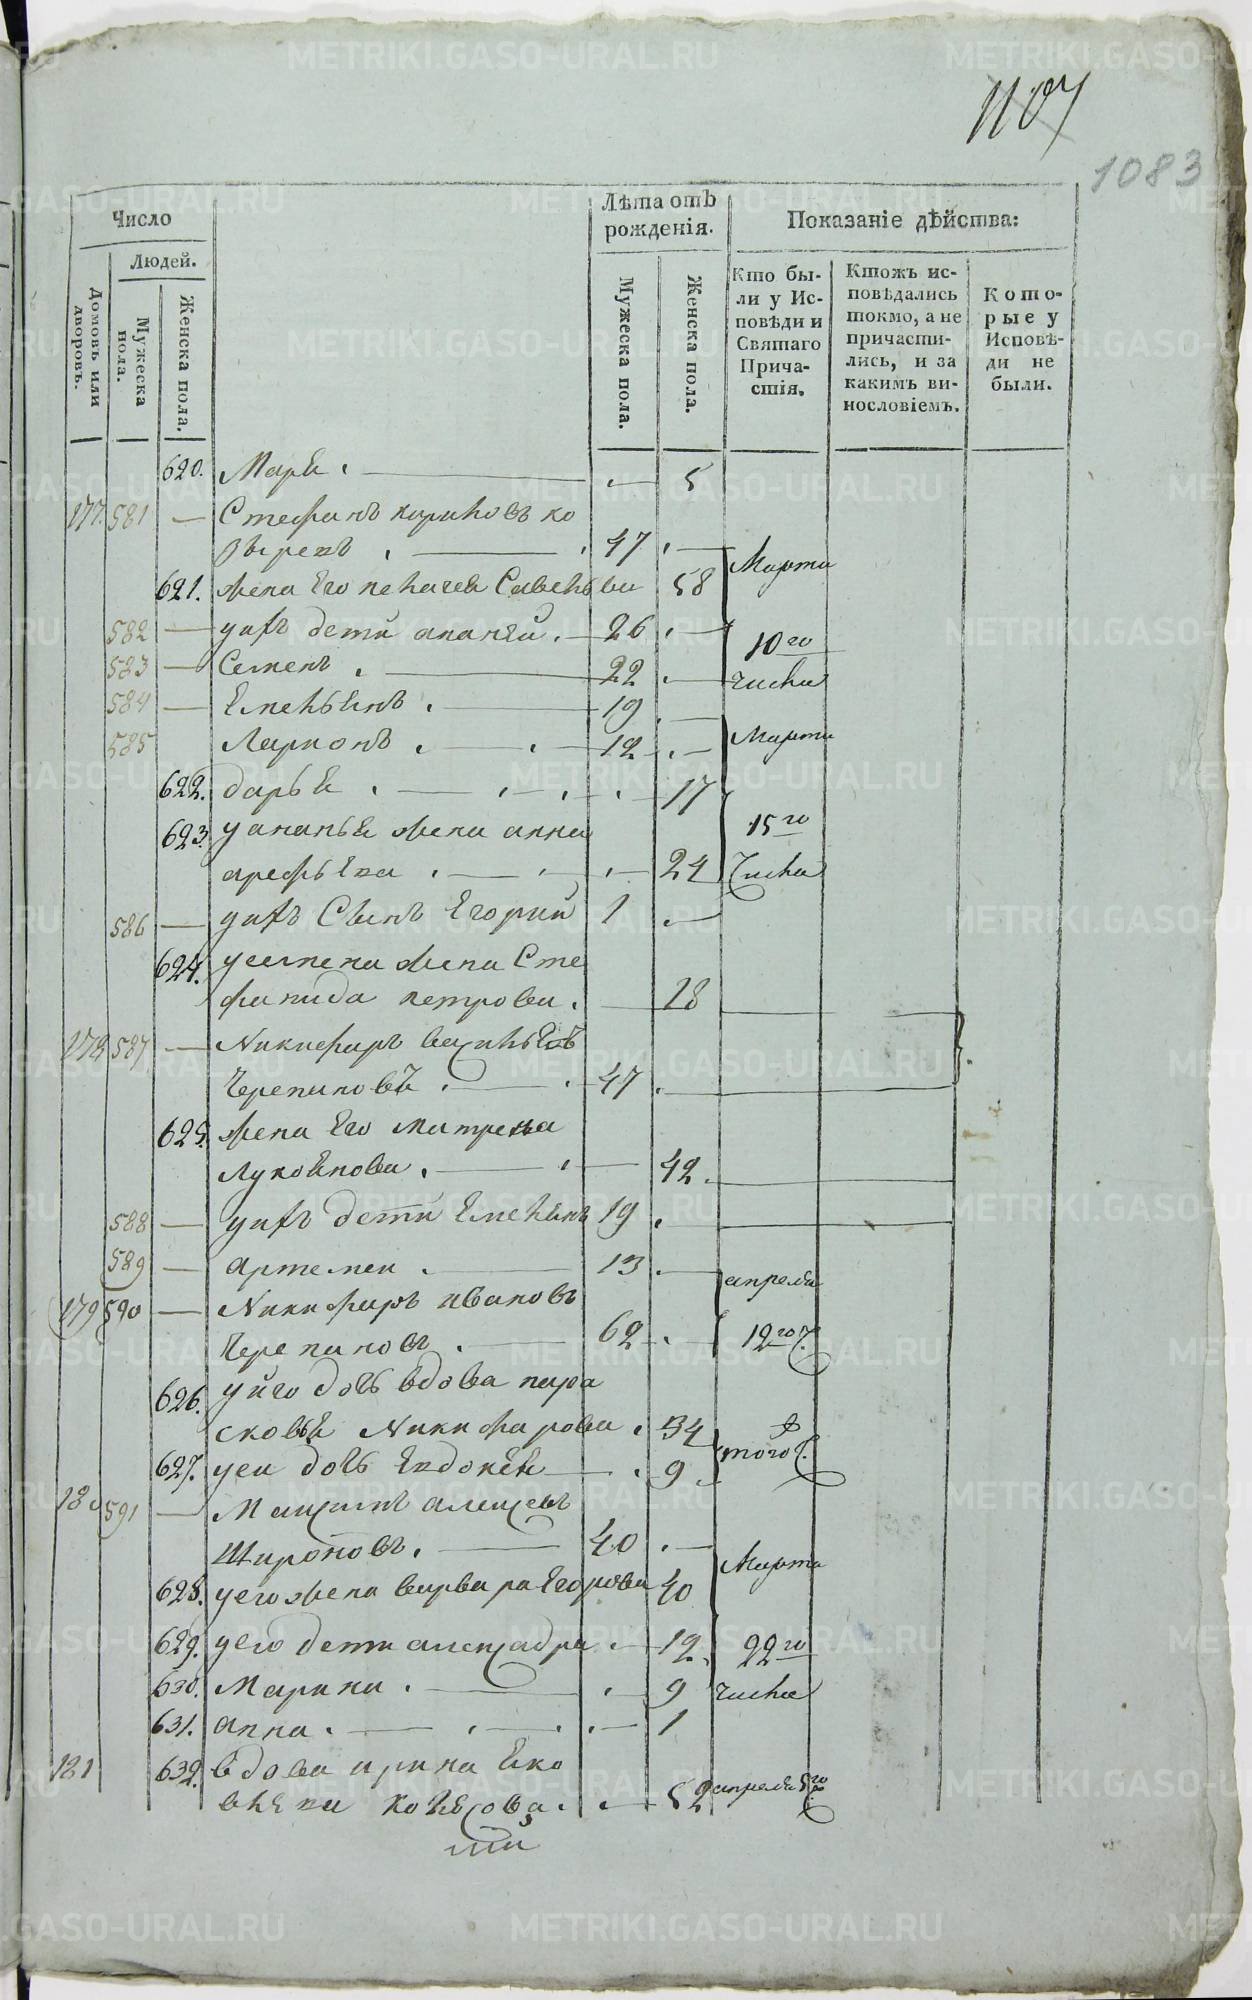 1107
1083
Число
Лѣта отъ рожденія.
Показаніе дѣйства:
Людей.
Домовъ или дворовъ.
Мужеска пола.
Женска пола.
Мужеска пола.
Женска пола.
Кто бы-
ли у Ис-
повѣди и
Святаго
Прича-
стія.
Ктожъ ис-
повѣдались
токмо, а не
причасти-
лись, и за
какимъ ви-
нословіемъ.
Кото-
рые у
Исповѣ-
ди не
были.
620. Марья 5
177. 581 Стефанъ кириловъ ко
зыревъ 47
621. жена Его пелагея Савельева 58
Марта
582 у ихъ дети ананьй 26
10го
583 Семенъ 22
числа
584 Емельянъ 19
585 Ларионъ 12
Марта
622. дарья 17
623. у ананья жена анна
15го
арефьева 24
числа
586 у ихъ Сынъ Егорий 1
624. у семена жена Сте
фанида петрова 28
178 587 Никифоръ васильевъ
Черепановъ 47
625. жена Его Матрена
Лукоянова 42.
588 у ихъ дети Емельянъ 19
589 артемеи 13
апреля
179 590 Никифоръ ивановъ
Черепановъ 62
12го ч.
626. у него дочь вдова пара
сковья Никифарова 34
627. у еи дочь Евдокея 9
того ч.
180 591 Максимъ алексеевъ
Широновъ 40
Марта
628. у его жена варвара Егорова 40
629. у его дети александра 12
22го
630. Марина 9
числа
631. анна 1
181 632. вдова ирина Яко
влева 52
апреля 5го ч.